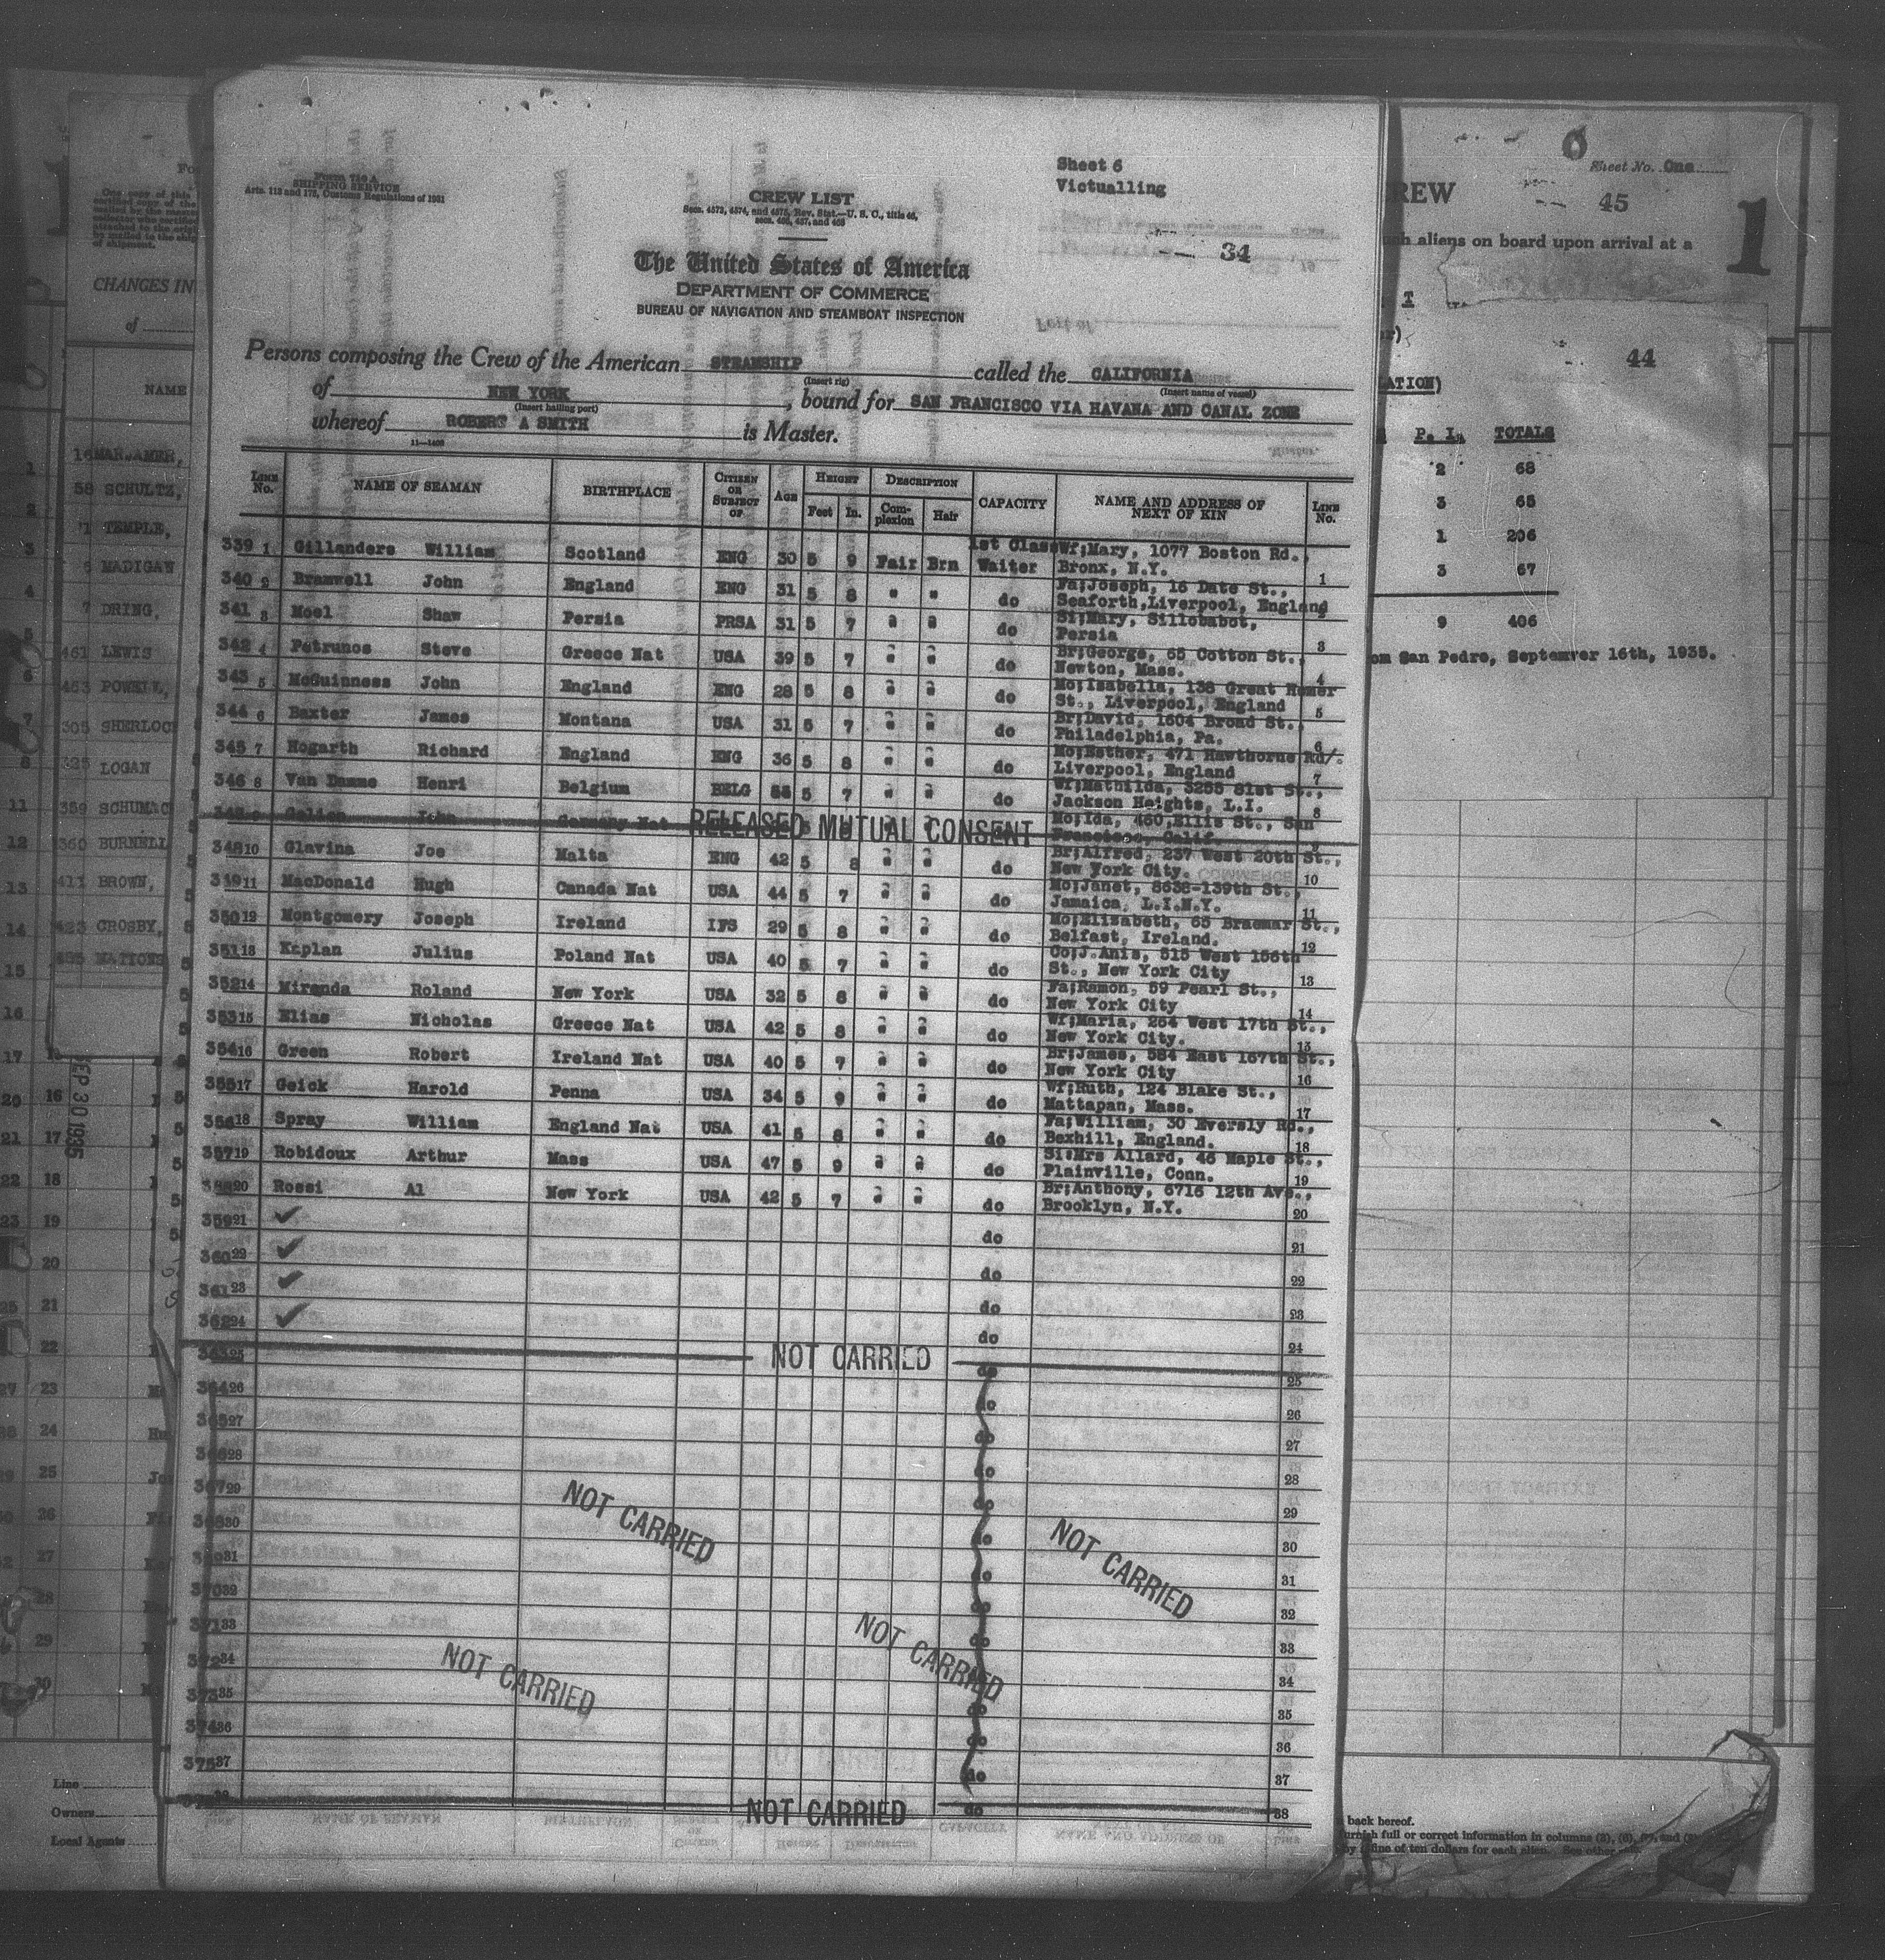 Form 710 A
SHIPPING SERVICE
Arts. 118 and 175, Customs Regulations of 1931
CREW LIST
Secs. 4573, 4574, and 4575, Rev. Stat.—U. S. C., title 46,
secs. 456, 457, and 458
Sheet 6
Victualling
34
The United States of America
DEPARTMENT OF COMMERCE
BUREAU OF NAVIGATION AND STEAMBOAT INSPECTION
Persons composing the Crew of the American STEAMSHIP called the CALIFORNIA
(Insert rig) (Insert name of vessel)
of NEW YORK, bound for SAN FRANCISCO VIA HAVANA AND CANAL ZONE
(Insert hailing port)
whereof ROBERT A SMITH is Master.
11—1408
LINE No. NAME OF SEAMAN BIRTHPLACE CITIZEN OR SUBJECT OF Age HEIGHT Feet In. DESCRIPTION Complexion Hair CAPACITY NAME AND ADDRESS OF NEXT OF KIN LINE No.
339 1 Gillanders William Scotland ENG 30 5 9 Fair Brn 1st Class Waiter Wf;Mary, 1077 Boston Rd., Bronx, N.Y. 1
340 2 Bramwell John England ENG 31 5 8 " " do Fa;Joseph, 16 Date St., Seaforth,Liverpool, England 2
341 3 Moel Shaw Persia PRSA 31 5 7 " " do Si;Mary, Sillobabot, Persia 3
342 4 Petrunos Steve Greece Nat USA 39 5 7 " " do Br;George, 65 Cotton St., Newton, Mass. 4
343 5 McGuinness John England ENG 28 5 8 " " do Mo;Isabella, 138 Great Homer St., Liverpool, England 5
344 6 Baxter James Montana USA 31 5 7 " " do Br;David, 1604 Broad St., Philadelphia, Pa. 6
345 7 Hogarth Richard England ENG 36 5 8 " " do Mo;Esther, 471 Hawthorne Rd/. Liverpool, England 7
346 8 Van Damme Henri Belgium BELG 5 7 " " do Wf;Mathilda, 3255 81st St., Jackson Heights, L.I. 8
John Germany Nat RELEASED MUTUAL CONSENT Mo;Ida, 460,Ellis St., San Francisco, Calif. 9
348 10 Glavina Joe Malta ENG 42 5 8 " " do Br;Alfred, 237 West 20th St., New York City. 10
349 11 MacDonald Hugh Canada Nat USA 44 5 7 " " do Mo;Janet, 8636-139th St., Jamaica, L.I.N.Y. 11
350 12 Montgomery Joseph Ireland IFS 29 5 8 " " do Mo;Elisabeth, 65 Braemar St., Belfast, Ireland. 12
351 13 Kaplan Julius Poland Nat USA 40 5 7 " " do Co;J.Anis, 515 West 156th St., New York City 13
352 14 Miranda Roland New York USA 32 5 8 " " do Fa;Ramon, 59 Pearl St., New York City 14
353 15 Elias Nicholas Greece Nat USA 42 5 8 " " do Wf;Maria, 264 West 17th St., New York City. 15
354 16 Green Robert Ireland Nat USA 40 5 7 " " do Br;James, 584 East 167th St., New York City 16
355 17 Geick Harold Penna USA 34 5 9 " " do Wf;Ruth, 124 Blake St., Mattapan, Mass. 17
356 18 Spray William England Nat USA 41 5 8 " " do Fa;William, 30 Eversly Rd., Bexhill, England. 18
357 19 Robidoux Arthur Mass USA 47 5 9 " " do Si;Mrs Allard, 46 Maple St., Plainville, Conn. 19
358 20 Rossi Al New York USA 42 5 7 " " do Br;Anthony, 6716 12th Ave., Brooklyn, N.Y. 20
359 21 ✓ do 21
360 22 ✓ do 22
361 23 ✓ do 23
362 24 ✓ do 24
25 NOT CARRIED do 25
364 26 do 26
365 27 do 27
366 28 do 28
367 29 do 29
368 30 do 30
369 31 do 31
370 32 do 32
371 33 do 33
372 34 34
373 35 do 35
374 36 do 36
375 37 do 37
38 NOT CARRIED do 38
NOT CARRIED
NOT CARRIED
NOT CARRIED
NOT CARRIED
CHANGES IN
of
NAME
SCHULTZ,
TEMPLE,
MADIGAN
DRING,
461 LEWIS
453 POWELL,
305 SHERLOC
325 LOGAN
359 SCHUMAC
360 BURNELL
411 BROWN,
423 CROSBY,
SEP 30 1935
Line
Owners
Local Agents
6
Sheet No. One
REW
45
1
ch aliens on board upon arrival at a
T
44
ATION)
P. I. TOTALS
2 68
3 65
1 206
3 67
9 406
om San Pedro, Septemver 16th, 1935.
back hereof.
urnish full or correct information in columns
by a fine of ten dollars for each alien. See other